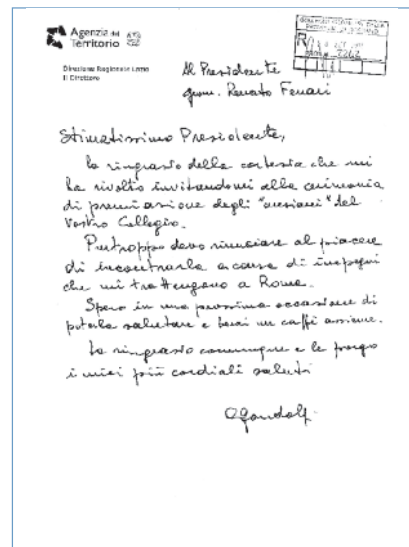 Agenzia del
Territorio
Direzione Regionale
Il Direttore
Al Presidente
geom. Renato Ferrari
Stimatissimo Presidente,
la ringrazio della cortesia che mi
ha rivolto invitandomi alla cerimonia
di premiazione degli "anziani" del
Vostro Collegio.
Purtroppo devo rinunciare al piacere
di incontrarla a causa di impegni
che mi trattengono a Roma.
Spero in una prossima occasione di
poterla salutare e berci un caffè assieme.
La ringrazio comunque e le porgo
i miei più cordiali saluti